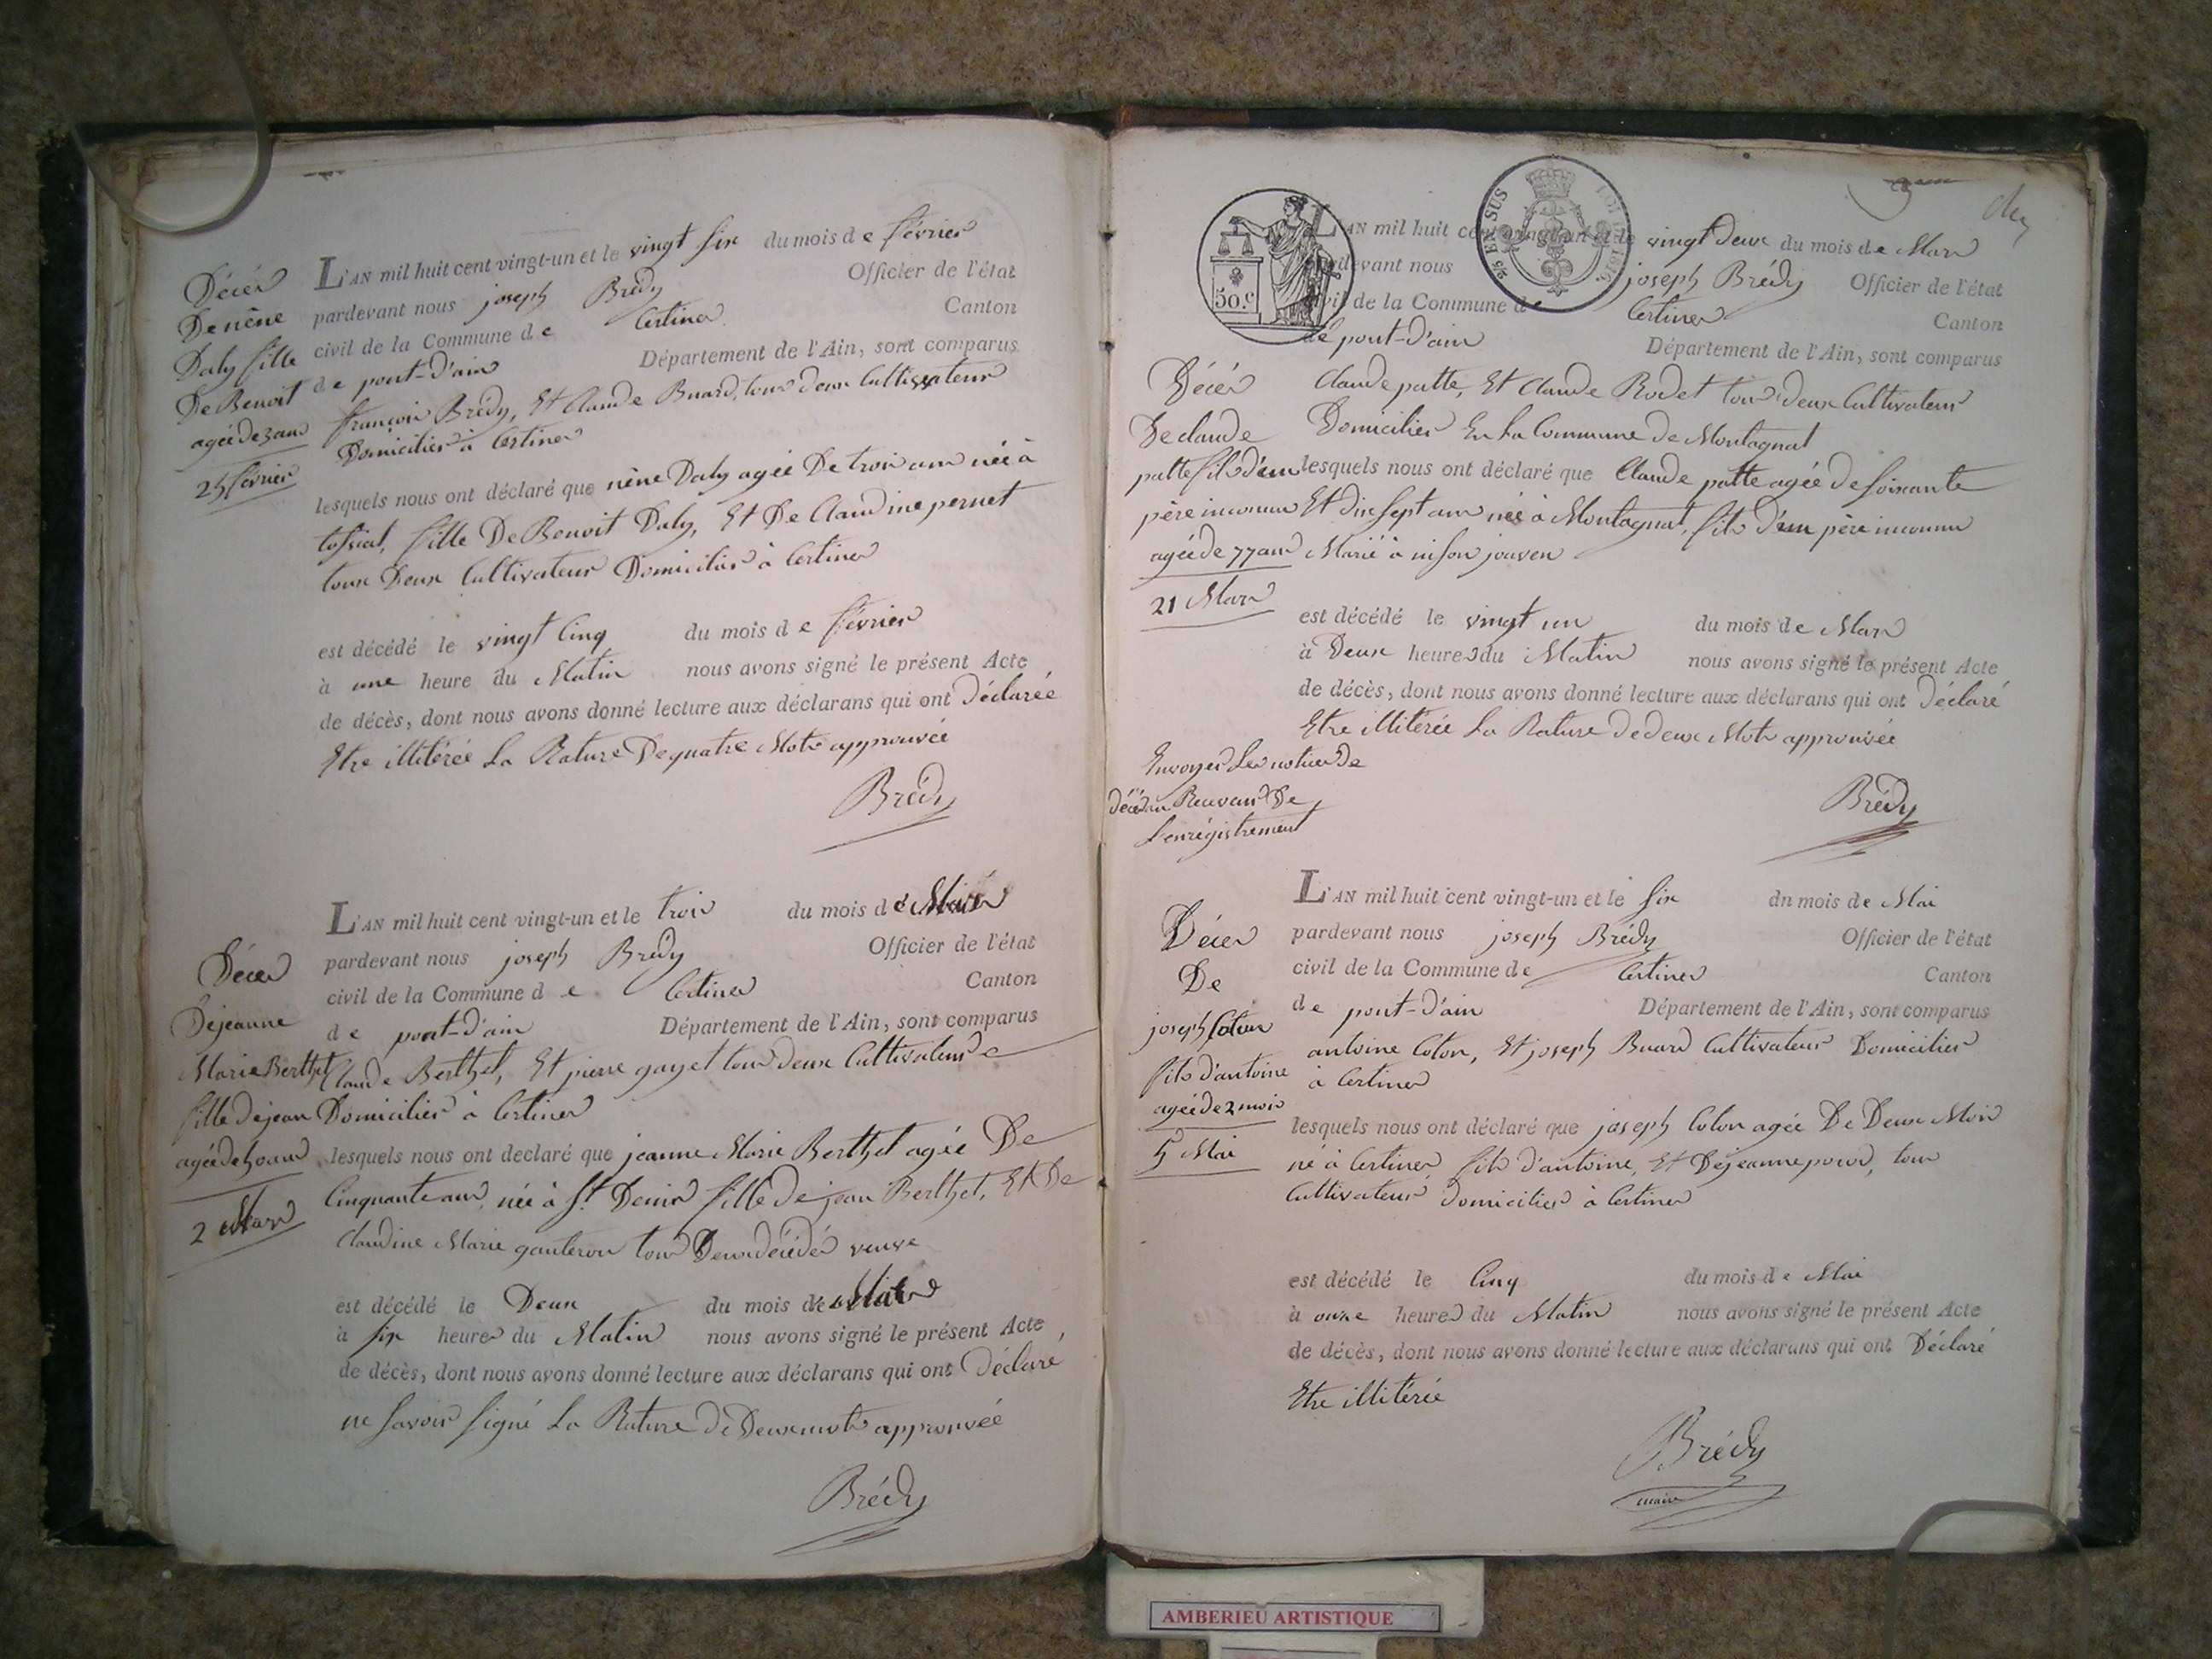 Décès
De nène
Daly fille
De Benoit
agée de 3 ans
25 février
L'AN mil huit cent vingt-un et le vingt six du mois de février
pardevant nous joseph Brédy Officier de l'état
civil de la Commune de Certines Canton
de pont-D'ain Département de l'Ain, sont comparus
françois Brédy, Et Claude Buard, tous deux Cultivateurs
Domiciliés à Certines
lesquels nous ont déclaré que nène Daly agée De trois ans née à
tossiat, fille De Benoit Daly, Et De Claudine pernet
tous Deux Cultivateurs Domiciliés à Certines
est décédé le vingt Cinq du mois de février
à une heure du Matin nous avons signé le présent Acte
de décès, dont nous avons donné lecture aux déclarans qui ont Déclarée
Etre illitérée La Rature De quatre Mots approuvée
Brédy
Décès
De jeanne
Marie Berthet
fille de jean
agée de 50 ans
2 Mars
L'AN mil huit cent vingt-un et le trois du mois de Mars
pardevant nous joseph Brédy Officier de l'état
civil de la Commune de Certines Canton
de pont-d'ain Département de l'Ain, sont comparus
Claude Berthet, Et pierre gayet tous deux Cultivateurs
Domiciliés à Certines
lesquels nous ont declaré que jeanne Marie Berthet agée De
Cinquante ans, née à St. Denis fille de jean Berthet, Et De
Claudine Marie gauteron tous Deux décédés veuve
est décédé le Deux du mois de Mars
à six heures du Matin nous avons signé le présent Acte
de décès, dont nous avons donné lecture aux déclarans qui ont Déclaré
ne savoir signé La Rature De Deux mots approuvée
Brédy
50 c.
25 EN SUS
L'AN mil huit cent vingt-un et le vingt deux du mois de Mars
pardevant nous joseph Brédy Officier de l'état
civil de la Commune de Certines Canton
de pont-D'ain Département de l'Ain, sont comparus
Décés
De claude
patte fils d'un
père inconnu
agée de 77 ans
21 Mars
Claude patte, Et Claude Rodet tous deux Cultivateurs
Domiciliés En La Commune De Montagnat
lesquels nous ont déclaré que Claude patte agée De soixante
Et Dix sept ans née à Montagnat, fils d'un père inconnu
Marié à nison jouven
est décédé le vingt un du mois de Mars
à Deux heures du Matin nous avons signé le présent Acte
de décès, dont nous avons donné lecture aux déclarans qui ont Déclaré
Etre illitérée La Rature De deux Mots approuvée
Envoyer Les notices de
décès au Receveur De
L'enrégistrement
Brédy
Décés
De
joseph Coton
fils d'antoine
agée de 2 mois
5 Mai
L'AN mil huit cent vingt-un et le six du mois de Mai
pardevant nous joseph Brédy Officier de l'état
civil de la Commune de Certines Canton
de pont-D'ain Département de l'Ain, sont comparus
antoine Coton, Et joseph Buard Cultivateurs Domiciliés
à Certines
lesquels nous ont déclaré que joseph Coton agée De Deux Mois
né à Certines fils d'antoine, Et De jeanne pour, tous
Cultivateurs domiciliés à Certines
est décédé le Cinq du mois de Mai
à onze heures du Matin nous avons signé le présent Acte
de décès, dont nous avons donné lecture aux déclarans qui ont Déclaré
Etre illitérée
Brédy
maire
AMBERIEU ARTISTIQUE